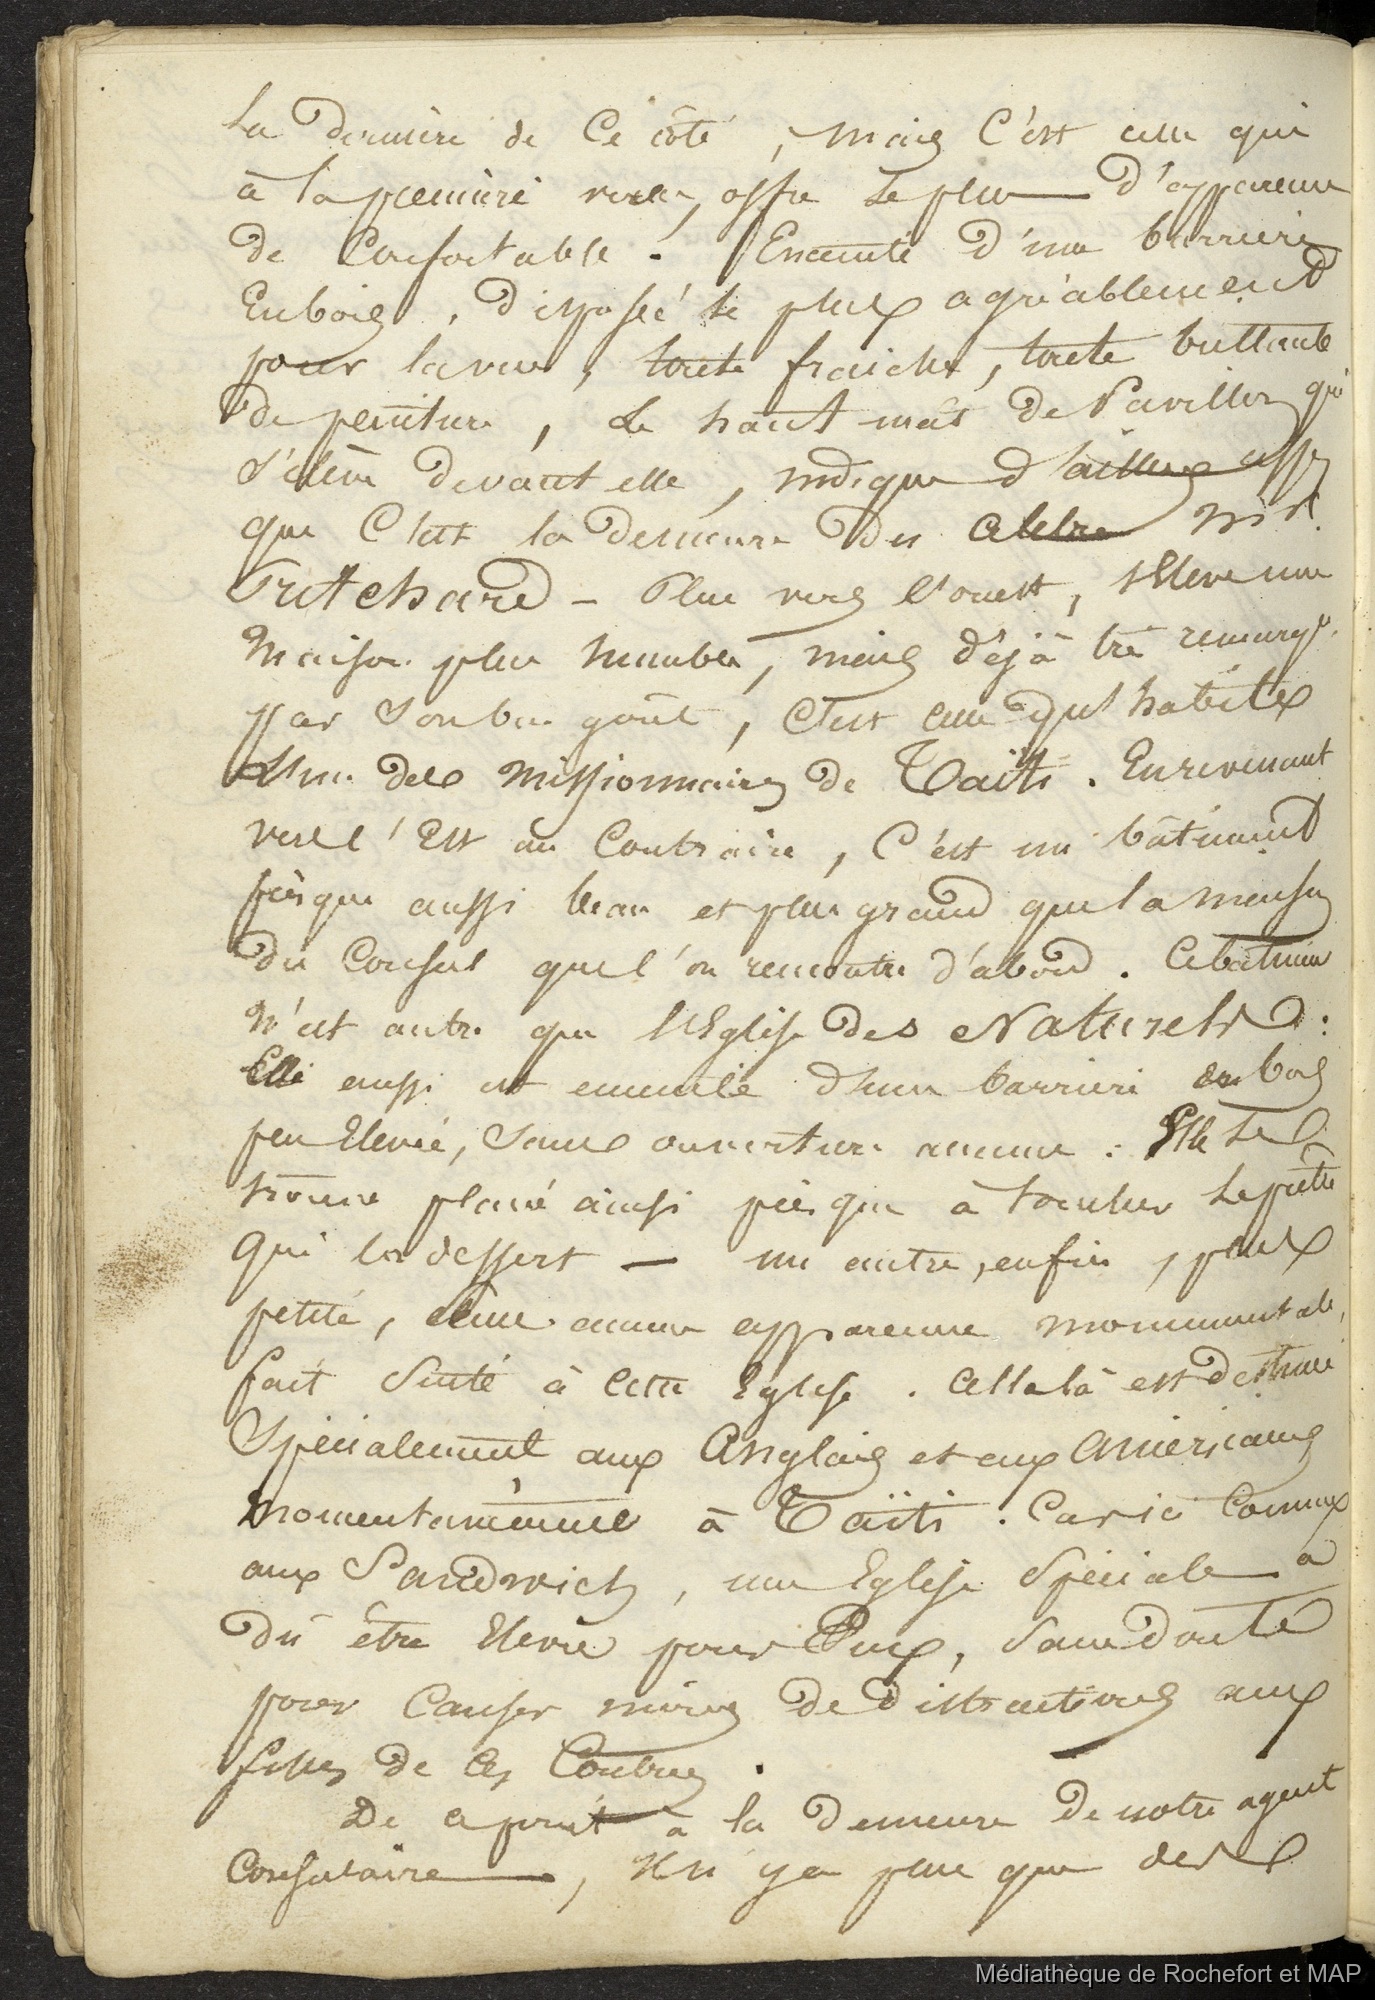 la dernière de ce côté, mais c'est celle qui
à la première vue, offre le plus d'apparence
de confortable. Enceinte d'une barrière
en bois, disposée le plus agréablement
pour la vue, toute fraiche, toute brillante
de peinture, le haut mât de Pavillon qui
s'élève devant elle, indique d'ailleurs assez
que c'est la demeure du célèbre Mr.
Pritchard – Plus vers l'ouest, s'élève une
maison plus humble, mais déjà très remarq.
par son bon goût, c'est celle qu'habite
l'un des missionnaires de Taïti. En revenant
vers l'Est au contraire, c'est un bâtiment
presque aussi beau et plus grand que la maison
du Consul que l'on rencontre d'abord. Ce bâtiment
n'est autre que l'Eglise des Naturels :
Elle aussi est enceinte d'une barrière en bois
peu élevée, sans ouverture aucune : Elle se
trouve placé ainsi presque à toucher le prêtre
qui la dessert — une autre, enfin, plus
petite, d'une apparence monumentale,
fait suite à cette Eglise. Celle là est destinée
spécialement aux Anglais et aux Américains
momentanément à Taïti. Car ici comme
aux Sandwich, une Eglise spéciale a
dû être élevée pour Eux, sans doute
pour causer moins de distractions aux
filles de ces Contrées.
De ce point à la demeure de notre agent
consulaire, il n'y a plus que des
Médiathèque de Rochefort et MAP